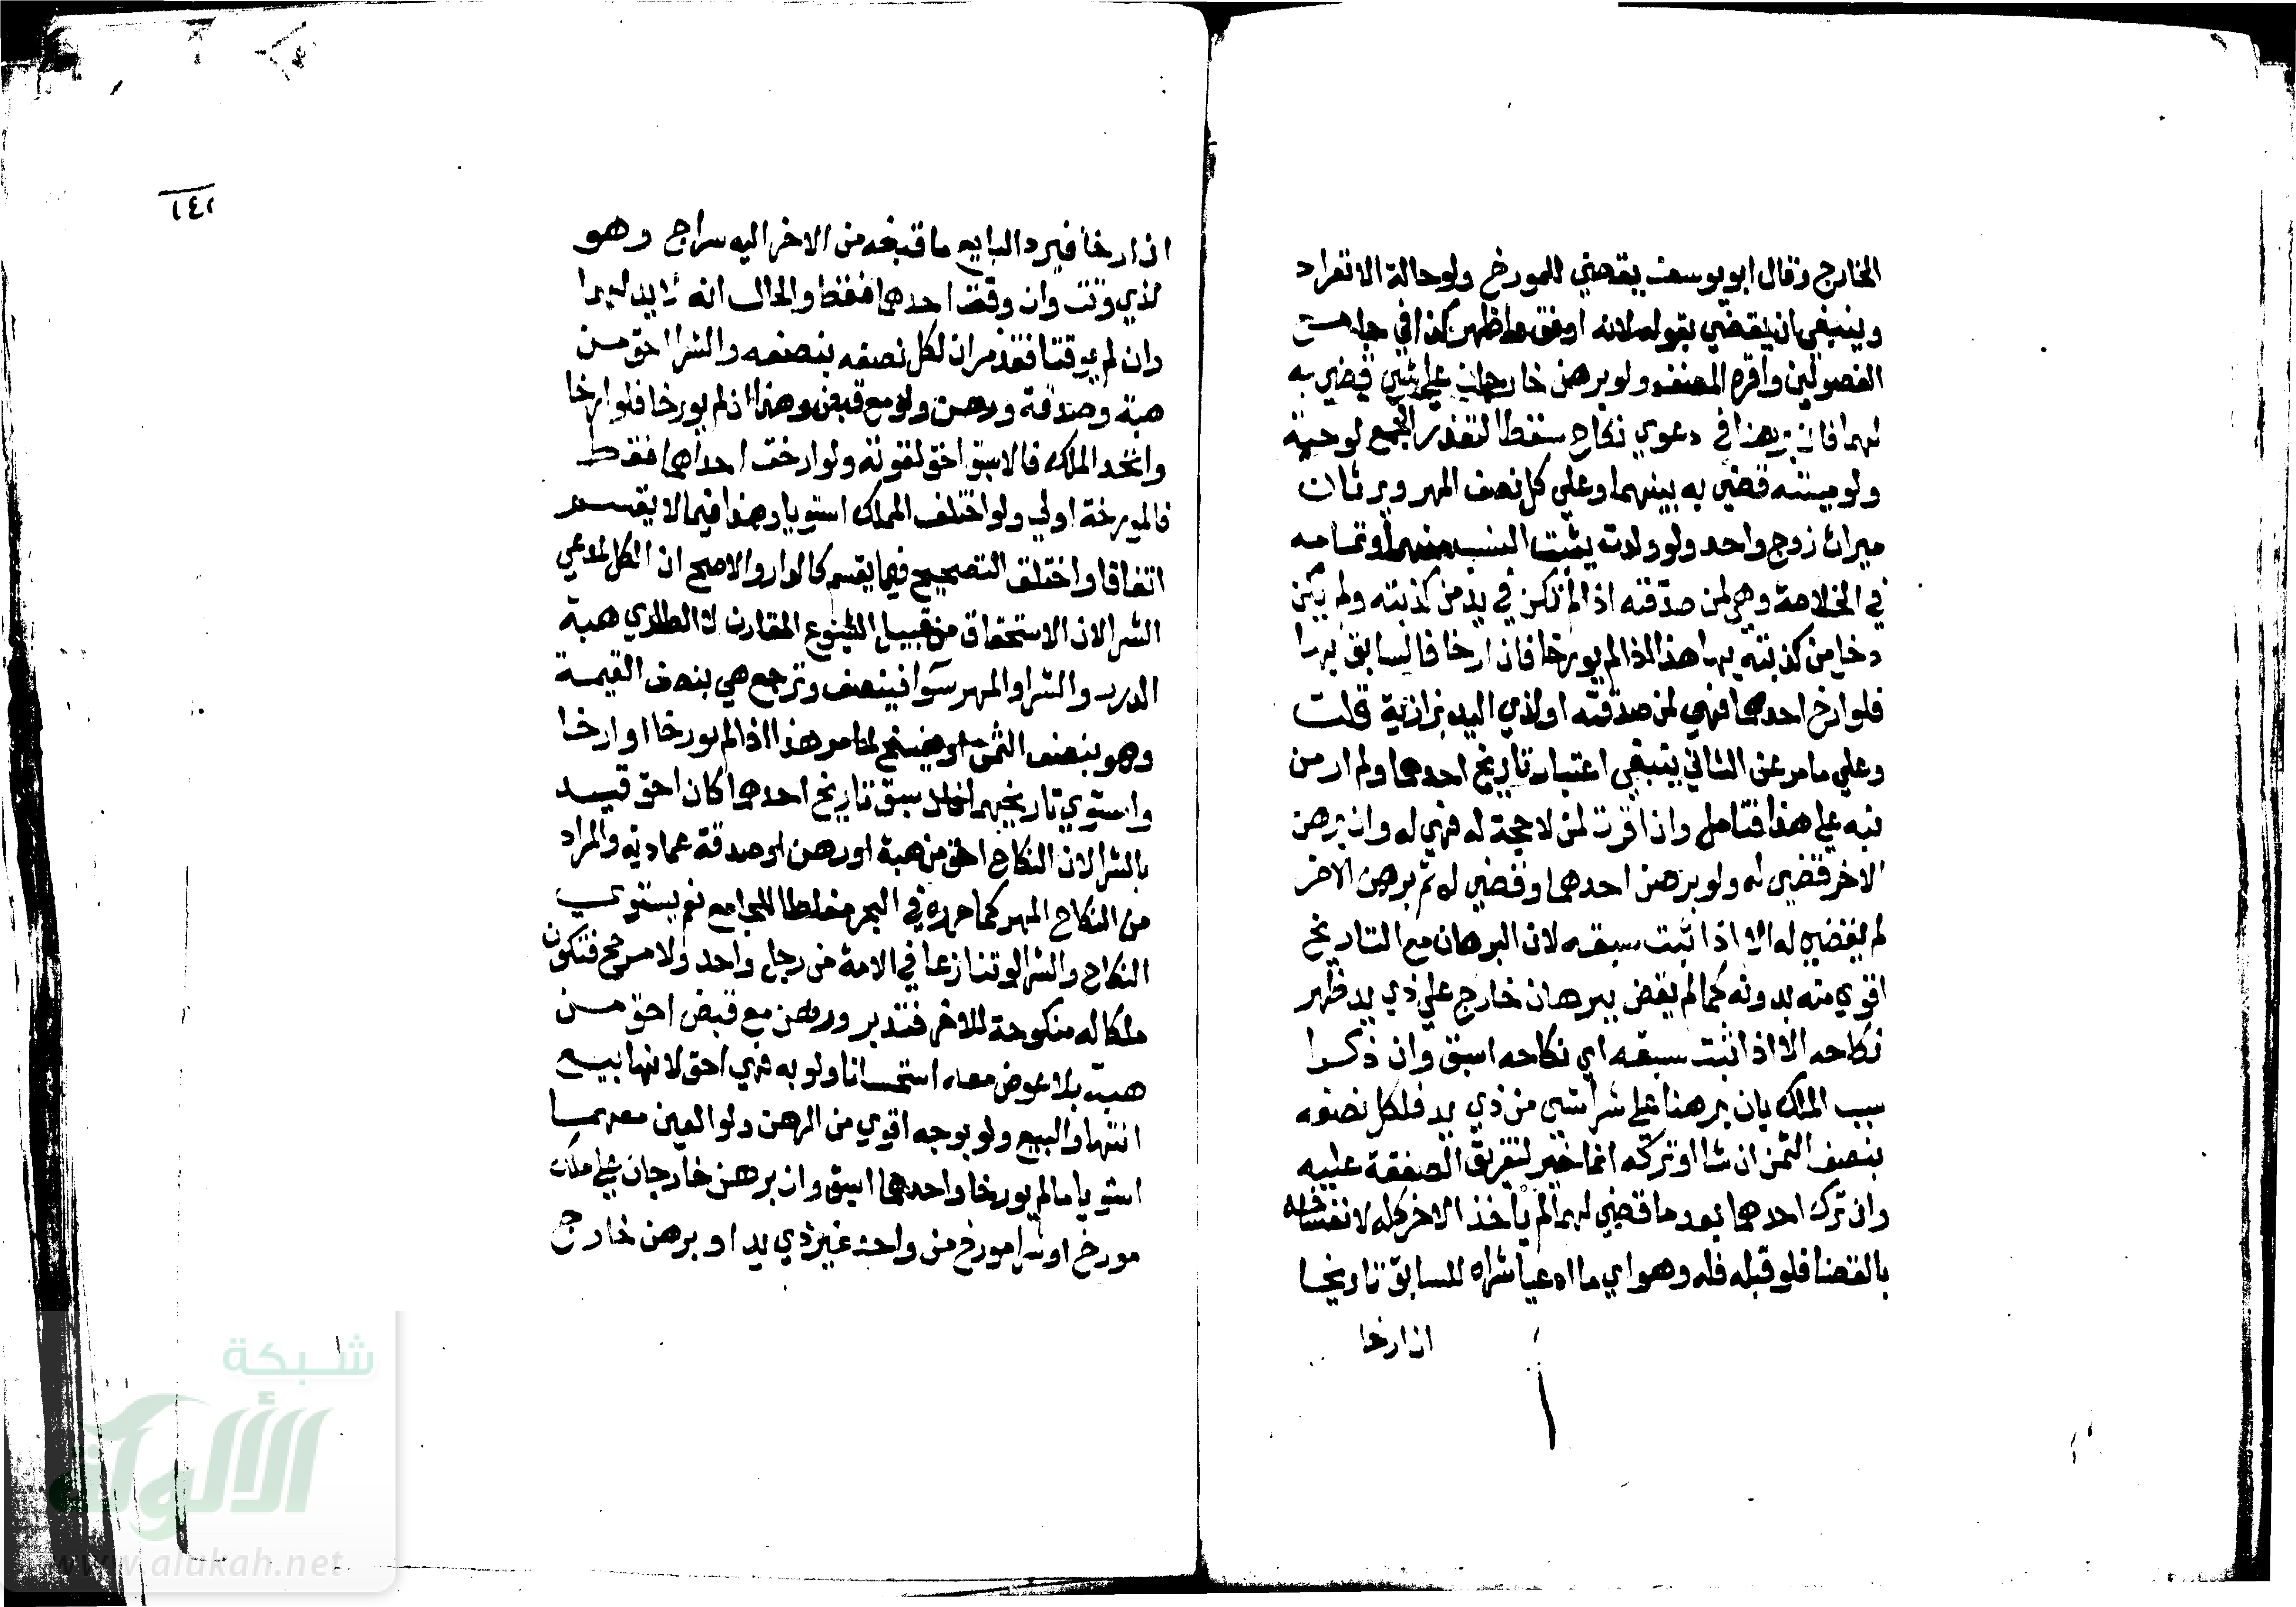 الخارج وقال ابو يوسف يقضي للمورخ ولو حالة الانفراد
وينبغي ان يقضي بقوله لانه اوفق واظهر كذا في جامع
الفصولين واقره المصنف ولو برهن خارجان علي شي قضي به
لهما فان برهنا في دعوي نكاح سقطا لتعذر الجمع لو حية
ولو ميتته قضي به بينهما وعلي كل نصف المهر ويرثان
ميراث زوج واحد ولو ولدت يثبت النسب منهما وتمامه
في الخلاصة وهي لمن صدقته اذا لم تكن في يد من كذبته ولم يكن
دخل من كذبته بها هذا اذا لم يورخا فان ارخا فالسابق بها
فلو ارخ احدهما فهي لمن صدقته او لذي اليد بزازية قلت
وعلي ما مر عن الثاني ينبغي اعتبار تاريخ احدهما ولم ار من
نبه علي هذا فتامل وان اقرت لمن لا حجة له فهي له وان برهن
الاخر قضي له ولو برهن احدهما وقضي له ثم برهن الاخر
لم يقضي له الا اذا ثبت سبقه لان البرهان مع التاريخ
اقوي منه بدونه كما لم يقض ببرهان خارج علي ذي يد ظهر
نكاحه الا اذا ثبت سبقه اي نكاحه اسبق وان ذكرا
سبب الملك بان برهنا علي شرا شي من ذي يد فلكل نصفه
بنصف الثمن ان شا او تركه انما خير لتفريق الصفقة عليه
وان ترك احدهما بعد ما قضي لهما لم ياخذ الاخر كله لانفساخه
بالقضا فلو قبله فله وهو اي ما ادعيا شراه للسابق تاريخا
ان ارخا
١٤٢
ان ارخا فيرد البايع ما قبضه من الاخر اليه سراج وهو
لذي وقت وان وقت احدهما فقط والحال انه لا يد لهما
وان لم يوقتا فقد مر ان لكل نصفه بنصفه والشرا احق من
هبة وصدقة ورهن ولو مع قبض وهذا ان لم يورخا فلو ارخا
واتحد الملك فالاسبق احق لقوته ولو ارخت احداهما فقط
فالمورخة اولي ولو اختلف المملك استويا وهذا فيما لا يقسم
اتفاقا واختلف التصحيح فيما يقسم كالدار والاصح ان الكل لمدعي
الشرا لان الاستحقاق من قبيل الشيوع المقارن لا الطاري هبة
الدرر والشرا والمهر سوا فينصف وترجع هي بنصف القيمة
وهو بنصف الثمن او يفسخ لما مر هذا اذا لم يورخا او ارخا
واستوي تاريخهما فلو سبق تاريخ احدهما كان احق قيد
بالشرا لان النكاح احق من هبة او رهن او صدقة عمادية والمراد
من النكاح المهر كما حرره في البحر مغلطا للجامع نعم يستوي
النكاح والشرا لو تنازعا في الامة من رجل واحد ولا مرجح فتكون
ملكا له منكوحة للاخر فتدبر ورهن مع قبض احق من
هبة بلا عوض معه استحسانا ولو به فهي احق لانها بيع
انتها والبيع ولو بوجه اقوي من الرهن ولو العين معهما
استويا ما لم يورخا واحدهما اسبق وان برهن خارجان علي ملك
مورخ او شرا مورخ من واحد غير ذي يد او برهن خارج
شبكة
الألوكة
www.alukah.net